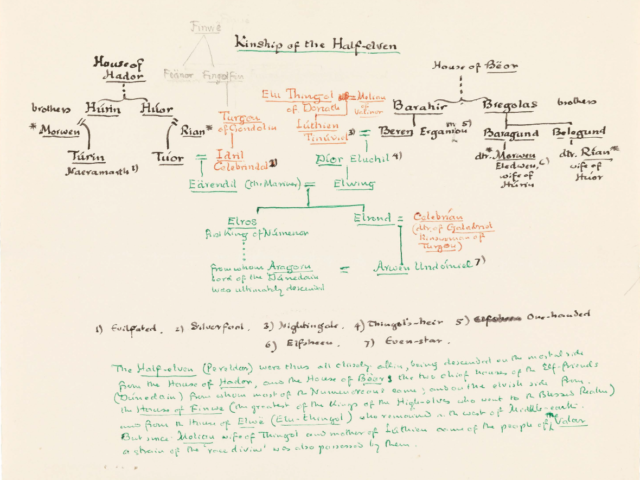 Finwë
Kinship of the Half-elven
House of Hador
House of Bëor
Fëanor Fingolfin
brothers Húrin Huor
Elu Thingol of Doriath = Melian of Valinor
Barahir Bregolas brothers
* Morwen Rian*
Turgon of Gondolin
Lúthien Tinúviel 3)
Beren Ergamion 5)
Baragund Belegund
Túrin Naeramarth 1)
Tuor = Idril Celebrindal 2)
Dior Eluchil 4)
dtr. *Morwen Eledwen, 6) wife of Húrin
dtr. Rian* wife of Huor
Eärendil (the Mariner) = Elwing
Elros
First King of Númenor
Elrond = Celebrían
(dtr. of Galadriel
Kinswoman of
Turgon)
from whom Aragorn
Lord of the Dúnedain
was ultimately descended
= Arwen Undómiel 7)
1) Evilfated. 2) Silverfoot. 3) Nightingale. 4) Thingol's-heir 5) One-handed
6) Elfsheen. 7) Even-star.
The Half-elven (Pereldar) were thus all closely akin, being descended on the mortal side
from the House of Hador, and the House of Bëor, the two chief houses of the Elf-friends
(Dúnedain) from whom most of the Númenóreans came; and on the elvish side from
the House of Finwë (the greatest of the Kings of the High-elves who went to the Blessed Realm)
and from the House of Elwë (Elu-thingol) who remained in the west of Middle-earth.
But since Melian wife of Thingol and mother of Lúthien came of the people of the Valar
a strain of the 'race divine' was also possessed by them.